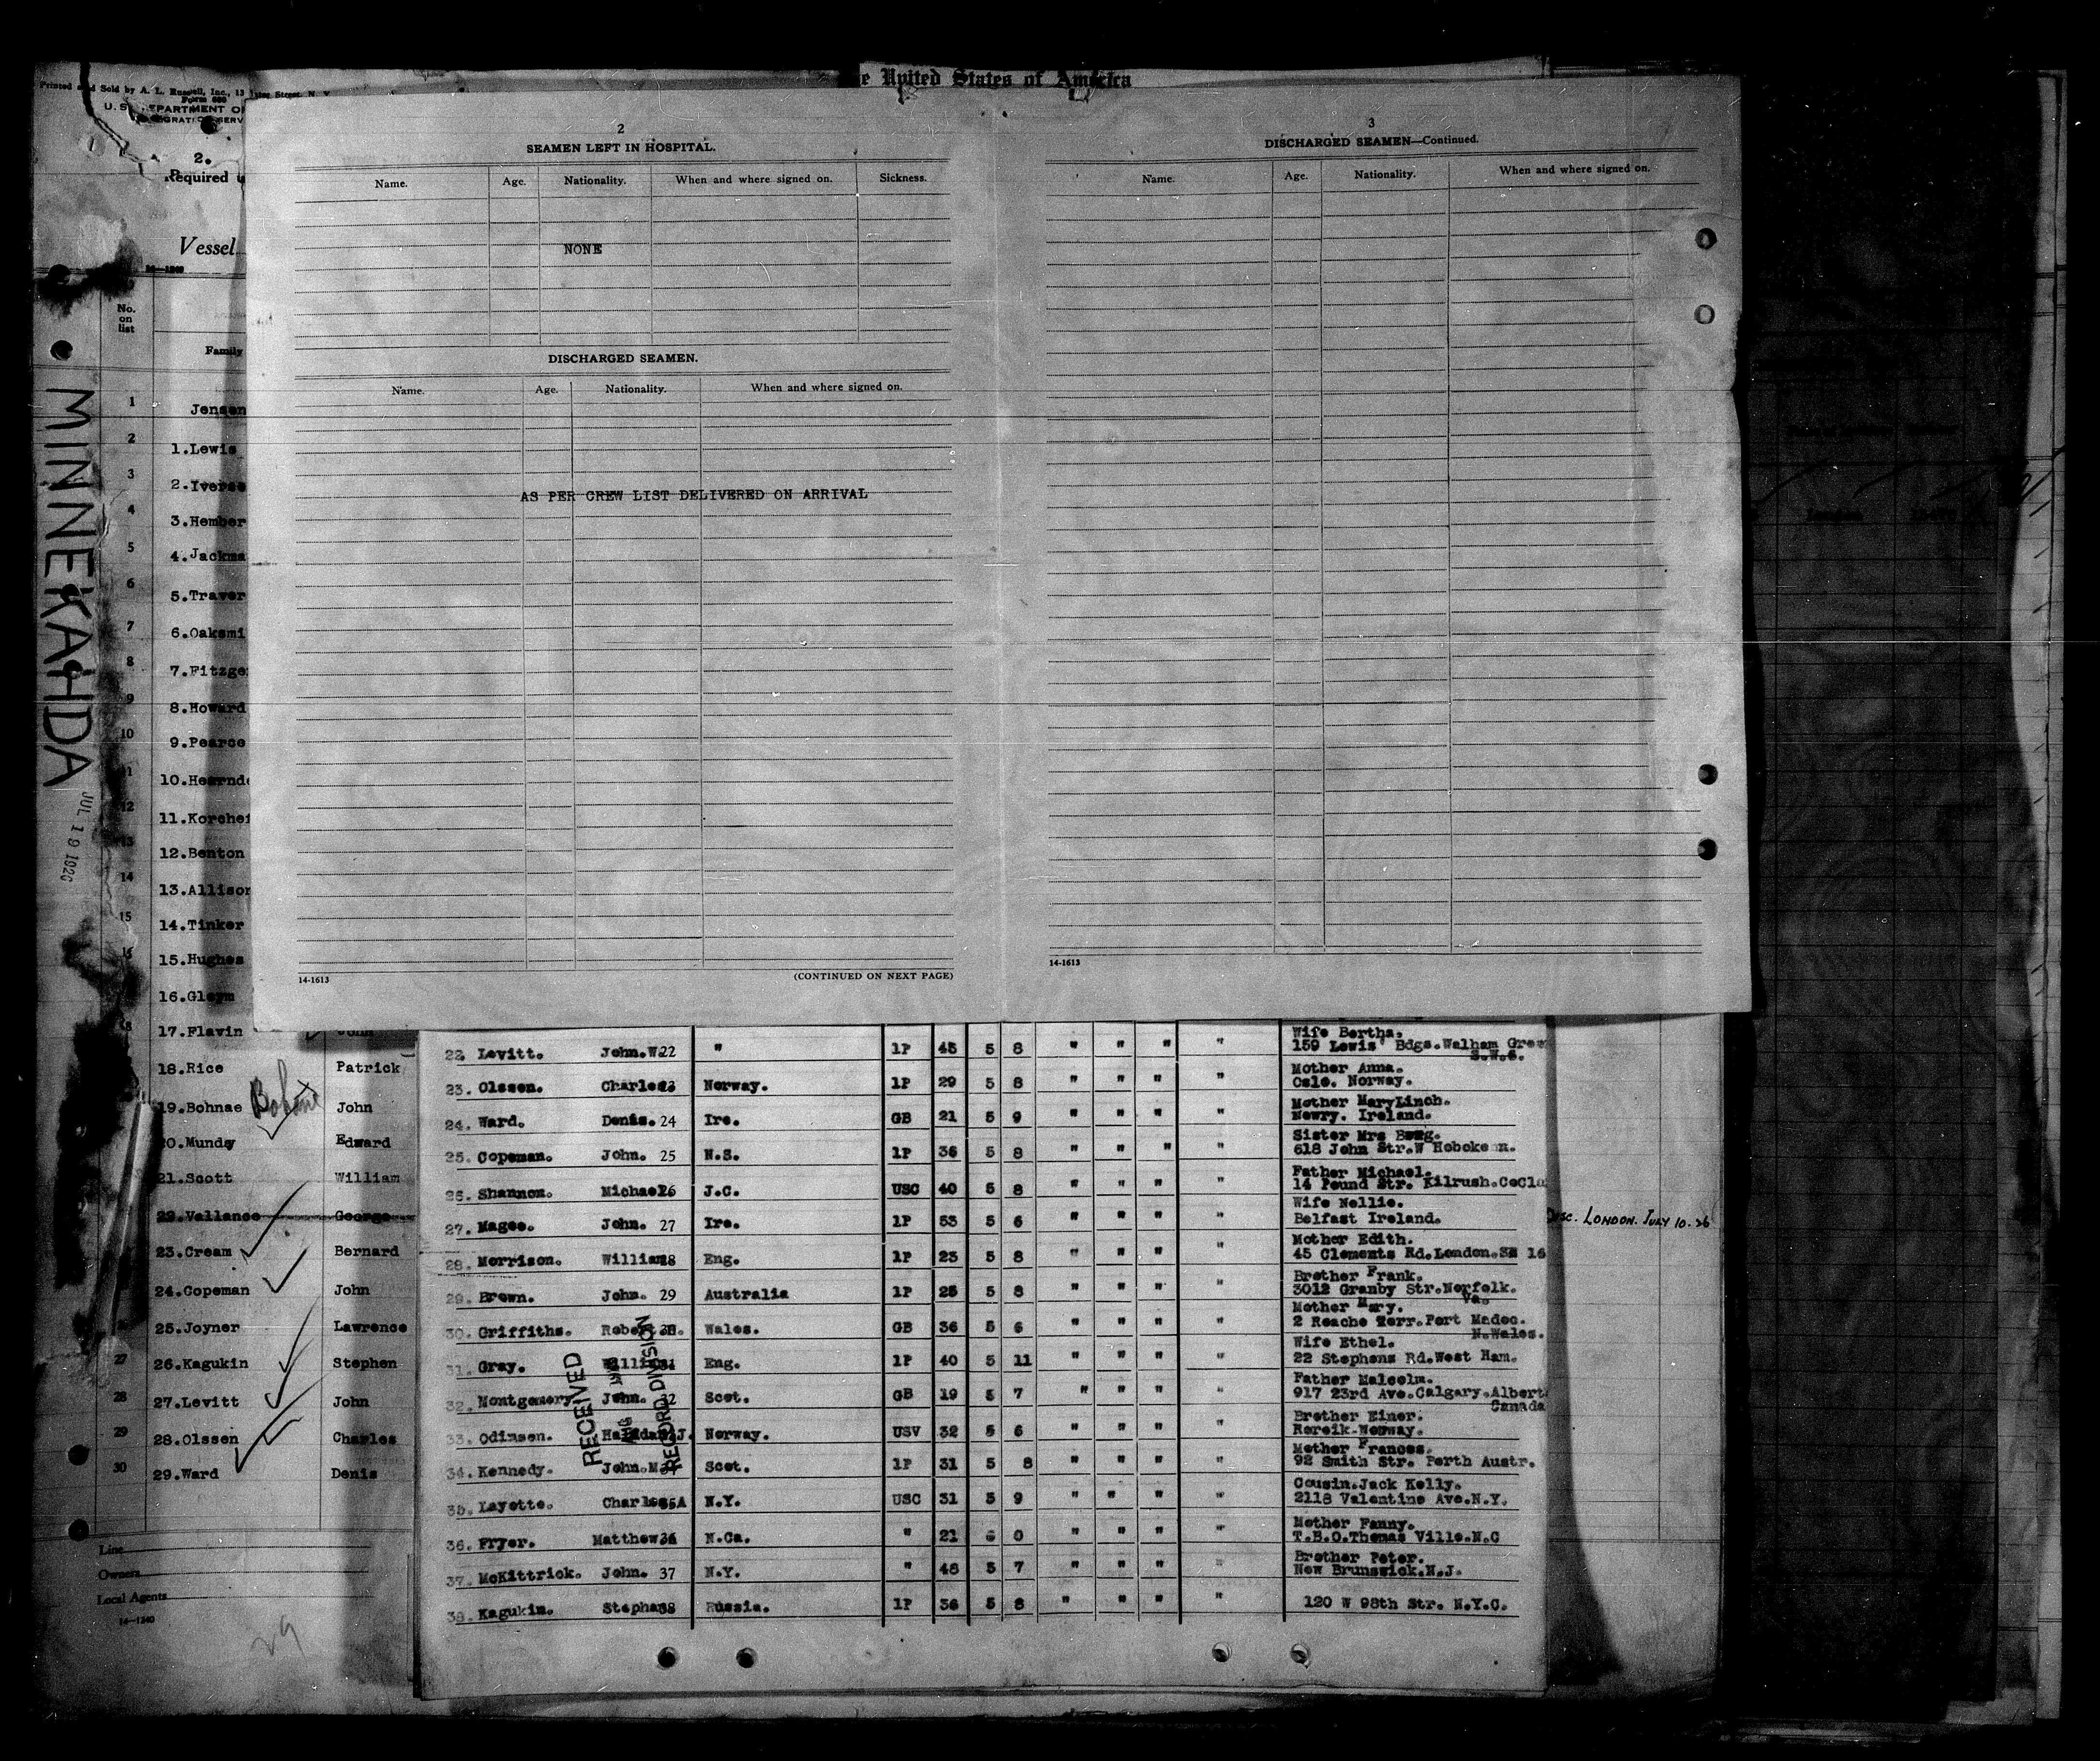 e United States of America
Printed and Sold by A. L. Russell, Inc., 13 Street, N. Y.
Form 680
U. S. DEPARTMENT OF
2.
Required u
Vessel
No. on list
Family
MINNEKAHDA
JUL 19 192
2
SEAMEN LEFT IN HOSPITAL.
Name. Age. Nationality. When and where signed on. Sickness.
NONE
DISCHARGED SEAMEN.
Name. Age. Nationality. When and where signed on.
AS PER CREW LIST DELIVERED ON ARRIVAL
14-1613 (CONTINUED ON NEXT PAGE)
3
DISCHARGED SEAMEN—Continued.
Name. Age. Nationality. When and where signed on.
14-1613
1 Jensen
2 1.Lewis
3 2.Iverse
4 3.Hember
5 4.Jackma
6 5.Traver
7 6.Oaksmi
8 7.Fitzge
9 8.Howard
10 9.Pearce
11 10.Hearnde
12 11.Korchei
13 12.Benton
14 13.Allison
15 14.Tinker
16 15.Hughes
16.Gleym
18 17.Flavin John
18.Rice Patrick
19.Bohnae John
20.Mundy Edward
21.Scott William
22.Vallance George
23.Cream Bernard
24.Copeman John
25.Joyner Lawrence
27 26.Kagukin Stephen
28 27.Levitt John
29 28.Olssen Charles
30 29.Ward Denis
Line
Owners
Local Agents
14-1240
29
22. Levitt. John.W. 22 " 1P 45 5 8 " " " " Wife Bertha.
159 Lewis Bdgs.Walham Gree
S.W.6.
23. Olssen. Charles. 23 Norway. 1P 29 5 8 " " " " Mother Anna.
Oslo. Norway.
24. Ward. Denis. 24 Ire. GB 21 5 9 " " " " Mother MaryLinch.
Newry. Ireland.
25. Copeman. John. 25 N.S. 1P 36 5 8 " " " " Sister Mrs
618 John Str.W Hoboken.
26. Shannon. Michael 26 J.C. USC 40 5 8 " " " " Father Michael.
14 Pound Str. Kilrush.CoCla
27. Magee. John. 27 Ire. 1P 53 5 6 " " " " Wife Nellie.
Belfast Ireland. Disc. LONDON. JULY 10. 26
28. Morrison. William 28 Eng. 1P 23 5 8 " " " " Mother Edith.
45 Clements Rd.London.SE 16
29. Brown. John. 29 Australia 1P 25 5 8 " " " " Brother Frank.
3012 Granby Str.Norfolk.
Va.
30. Griffiths. Robert 30 Wales. GB 36 5 6 " " " " Mother Mary.
2 Roache Terr.Port Madoc.
N.Wales.
31. Gray. William 31 Eng. 1P 40 5 11 " " " " Wife Ethel.
22 Stephens Rd.West Ham.
32. Montgomery John. 32 Scot. GB 19 5 7 " " " " Father Malcolm.
917 23rd Ave.Calgary.Albert
Canada
33. Odinsen. J. Norway. USV 32 5 6 " " " " Brother Einer.
Rereik Norway.
34. Kennedy. John.M. Scot. 1P 31 5 8 " " " " Mother Frances.
92 Smith Str. Perth Austr.
35. Layette. Charles A N.Y. USC 31 5 9 " " " " Cousin.Jack Kelly.
2118 Valentine Ave.N.Y.
36. Fryer. Matthew 36 N.Ca. " 21 6 0 " " " " Mother Fanny.
T.B.O.Thomas Ville.N.C
37. McKittrick. John. 37 N.Y. " 48 5 7 " " " " Brother Peter.
New Brunswick.N.J.
38. Kagukin. Stephan 38 Russia. 1P 36 5 8 " " " " 120 W 98th Str. N.Y.C.
RECEIVED
RECORD DIVISION